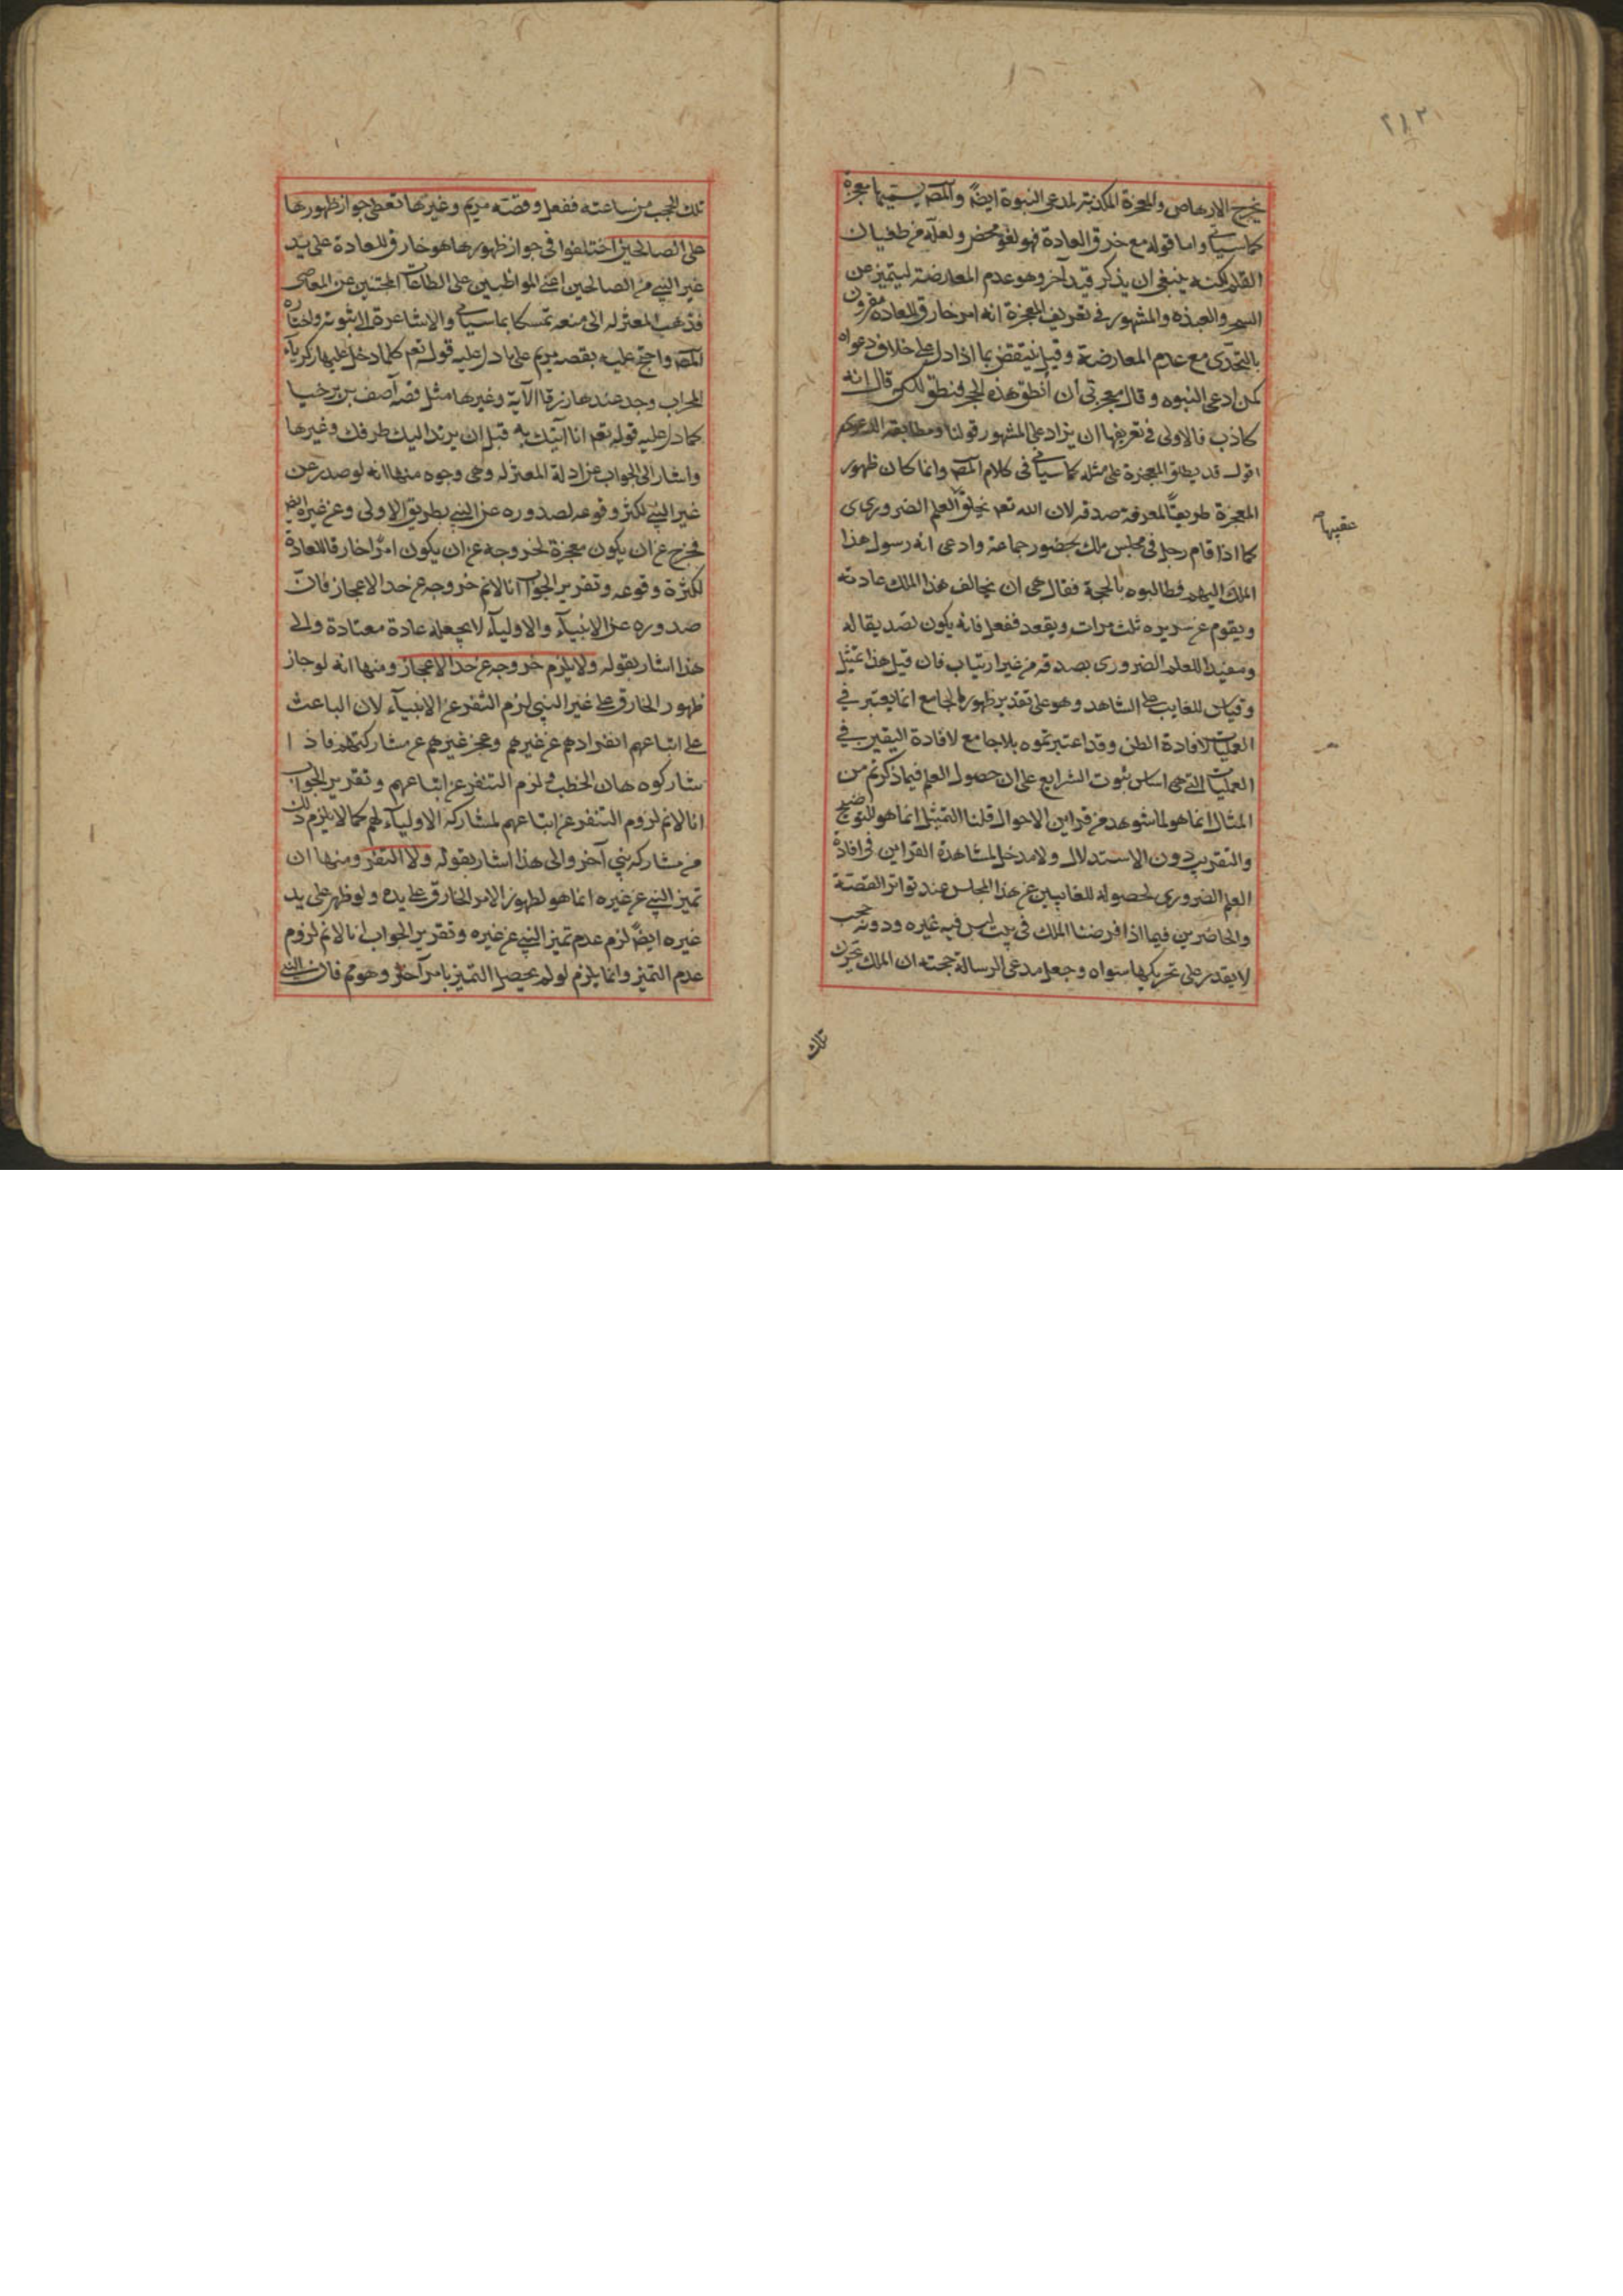 ٢١٣
يخرج الارهاص والمعجزة المكذبة لمدعى النبوة ايضاً والمص يسميها معجزة
كما سيأتى واما قوله مع خرق العادة فهو لغو محض ولعله من طغيان
القلم لكنه ينبغى ان يذكر قيد آخر وهو عدم المعارضة ليتميز عن
السحر والشعبذه والمشهور فى تعريف المعجزة انه امر خارق للعادة مقرون
بالتحدى مع عدم المعارضة وقيل ينتقض بما اذا دل على خلاف دعواه
كمن ادعى النبوه وقال معجزتى أن أنطق هذه الحجر فنطق لكن قال انه
كاذب فالاولى فى تعريفها ان يزاد على المشهور قولنا ومطابقه الدعوى
اقول قد يطلق المعجزة على مثله كما سيأتى فى كلام المص وانما كان ظهور
المعجزة طريقاً لمعرفة صدقه لان الله تعم يخلق العلم الضرورى
عقيبها
كما اذا قام رجل فى مجلس ملك بحضور جماعة وادعى انه رسول هذا
الملك اليهم فطالبوه بالحجة فقال هى ان يخالف هذا الملك عادته
ويقوم عن سريره ثلث مرات ويقعد ففعل فانه يكون تصديقا له
ومفيدا للعلم الضرورى بصدقه من غير ارتياب فان قيل هذا تمثيل
وقياس للغايب على الشاهد وهو على تقدير ظهور الجامع انما يعتبر فى
العمليات لافادة الظن وقد اعتبرتموه بلا جامع لافادة اليقين فى
العلميات التى هى اساس ثبوت الشرايع على ان حصول العلم فيما ذكرتم من
المثال انما هو لما شوهد من قراين الاحوال قلنا التمثيل انما هو للتوضيح
والتقريب دون الاستدلال ولا مدخل لمشاهدة القراين فى افادة
العلم الضرورى لحصوله للغايبين عن هذا المجلس عند تواتر القصة
والحاضرين فيما اذا فرضنا الملك فى بيت ليس فيه غيره ودونه حجب
لا يقدر على تحريكها سواه وجعل مدعى الرسالة حجته ان الملك يحرك
تلك
تلك الحجب من ساعته ففعل وقصة مريم وغيرها تعطى جواز ظهورها
على الصالحين اختلفوا فى جواز ظهور ما هو خارق للعادة على يد
غير النبى من الصالحين اعنى المواظبين على الطاعات المجتنبين عن المعاصى
فذهب المعتزله الى منعه تمسكا بما سيأتى والاشاعرة الى ثبوته واختاره
المص واحتج عليه بقصه مريم على ما دل عليه قوله تعم كلما دخل عليها زكريا
المحراب وجد عندها رزقا الآية وغيرها مثل قصه آصف بن برخيا
كما دل عليه قوله تعم انا آتيك به قبل ان يرتد اليك طرفك وغيرها
واشار الى الجواب عن ادلة المعتزله وهى وجوه منها انه لو صدر عن
غير النبى لكثر وقوعه لصدوره عن النبى بطريق الاولى وعن غيره ايض
فخرج عن ان يكون معجزة لخروجه عن ان يكون امرا خارقا للعادة
لكثرة وقوعه وتقرير الجواب انا لانم خروجه عن حد الاعجاز فان
صدوره عن الانبيآء والاوليآء لا يجعله عادة معتادة والى
هذا اشار بقوله ولا يلزم خروجه عن حد الاعجاز ومنها انه لو جاز
ظهور الخارق على غير النبى لزم التنفر عن الانبيآء لان الباعث
على اتباعهم انفرادهم عن غيرهم وعجز غيرهم عن مشاركتهم فاذا
شاركوه هان الخطب ولزم التنفر عن اتباعهم وتقرير الجواب
انا لانم لزوم التنفر عن اتباعهم لمشاركة الاوليآء لهم كما لا يلزم ذلك
من مشاركه نبى آخر والى هذا اشار بقوله ولا التنفر ومنها ان
تميز النبى عن غيره انما هو لظهور الامر الخارق على يده ولو ظهر على يد
غيره ايضاً لزم عدم تميز النبى عن غيره وتقرير الجواب انا لانم لزوم
عدم التميز وانما يلزم لو لم يحصل التميز بامر آخر وهو مم فان النبى